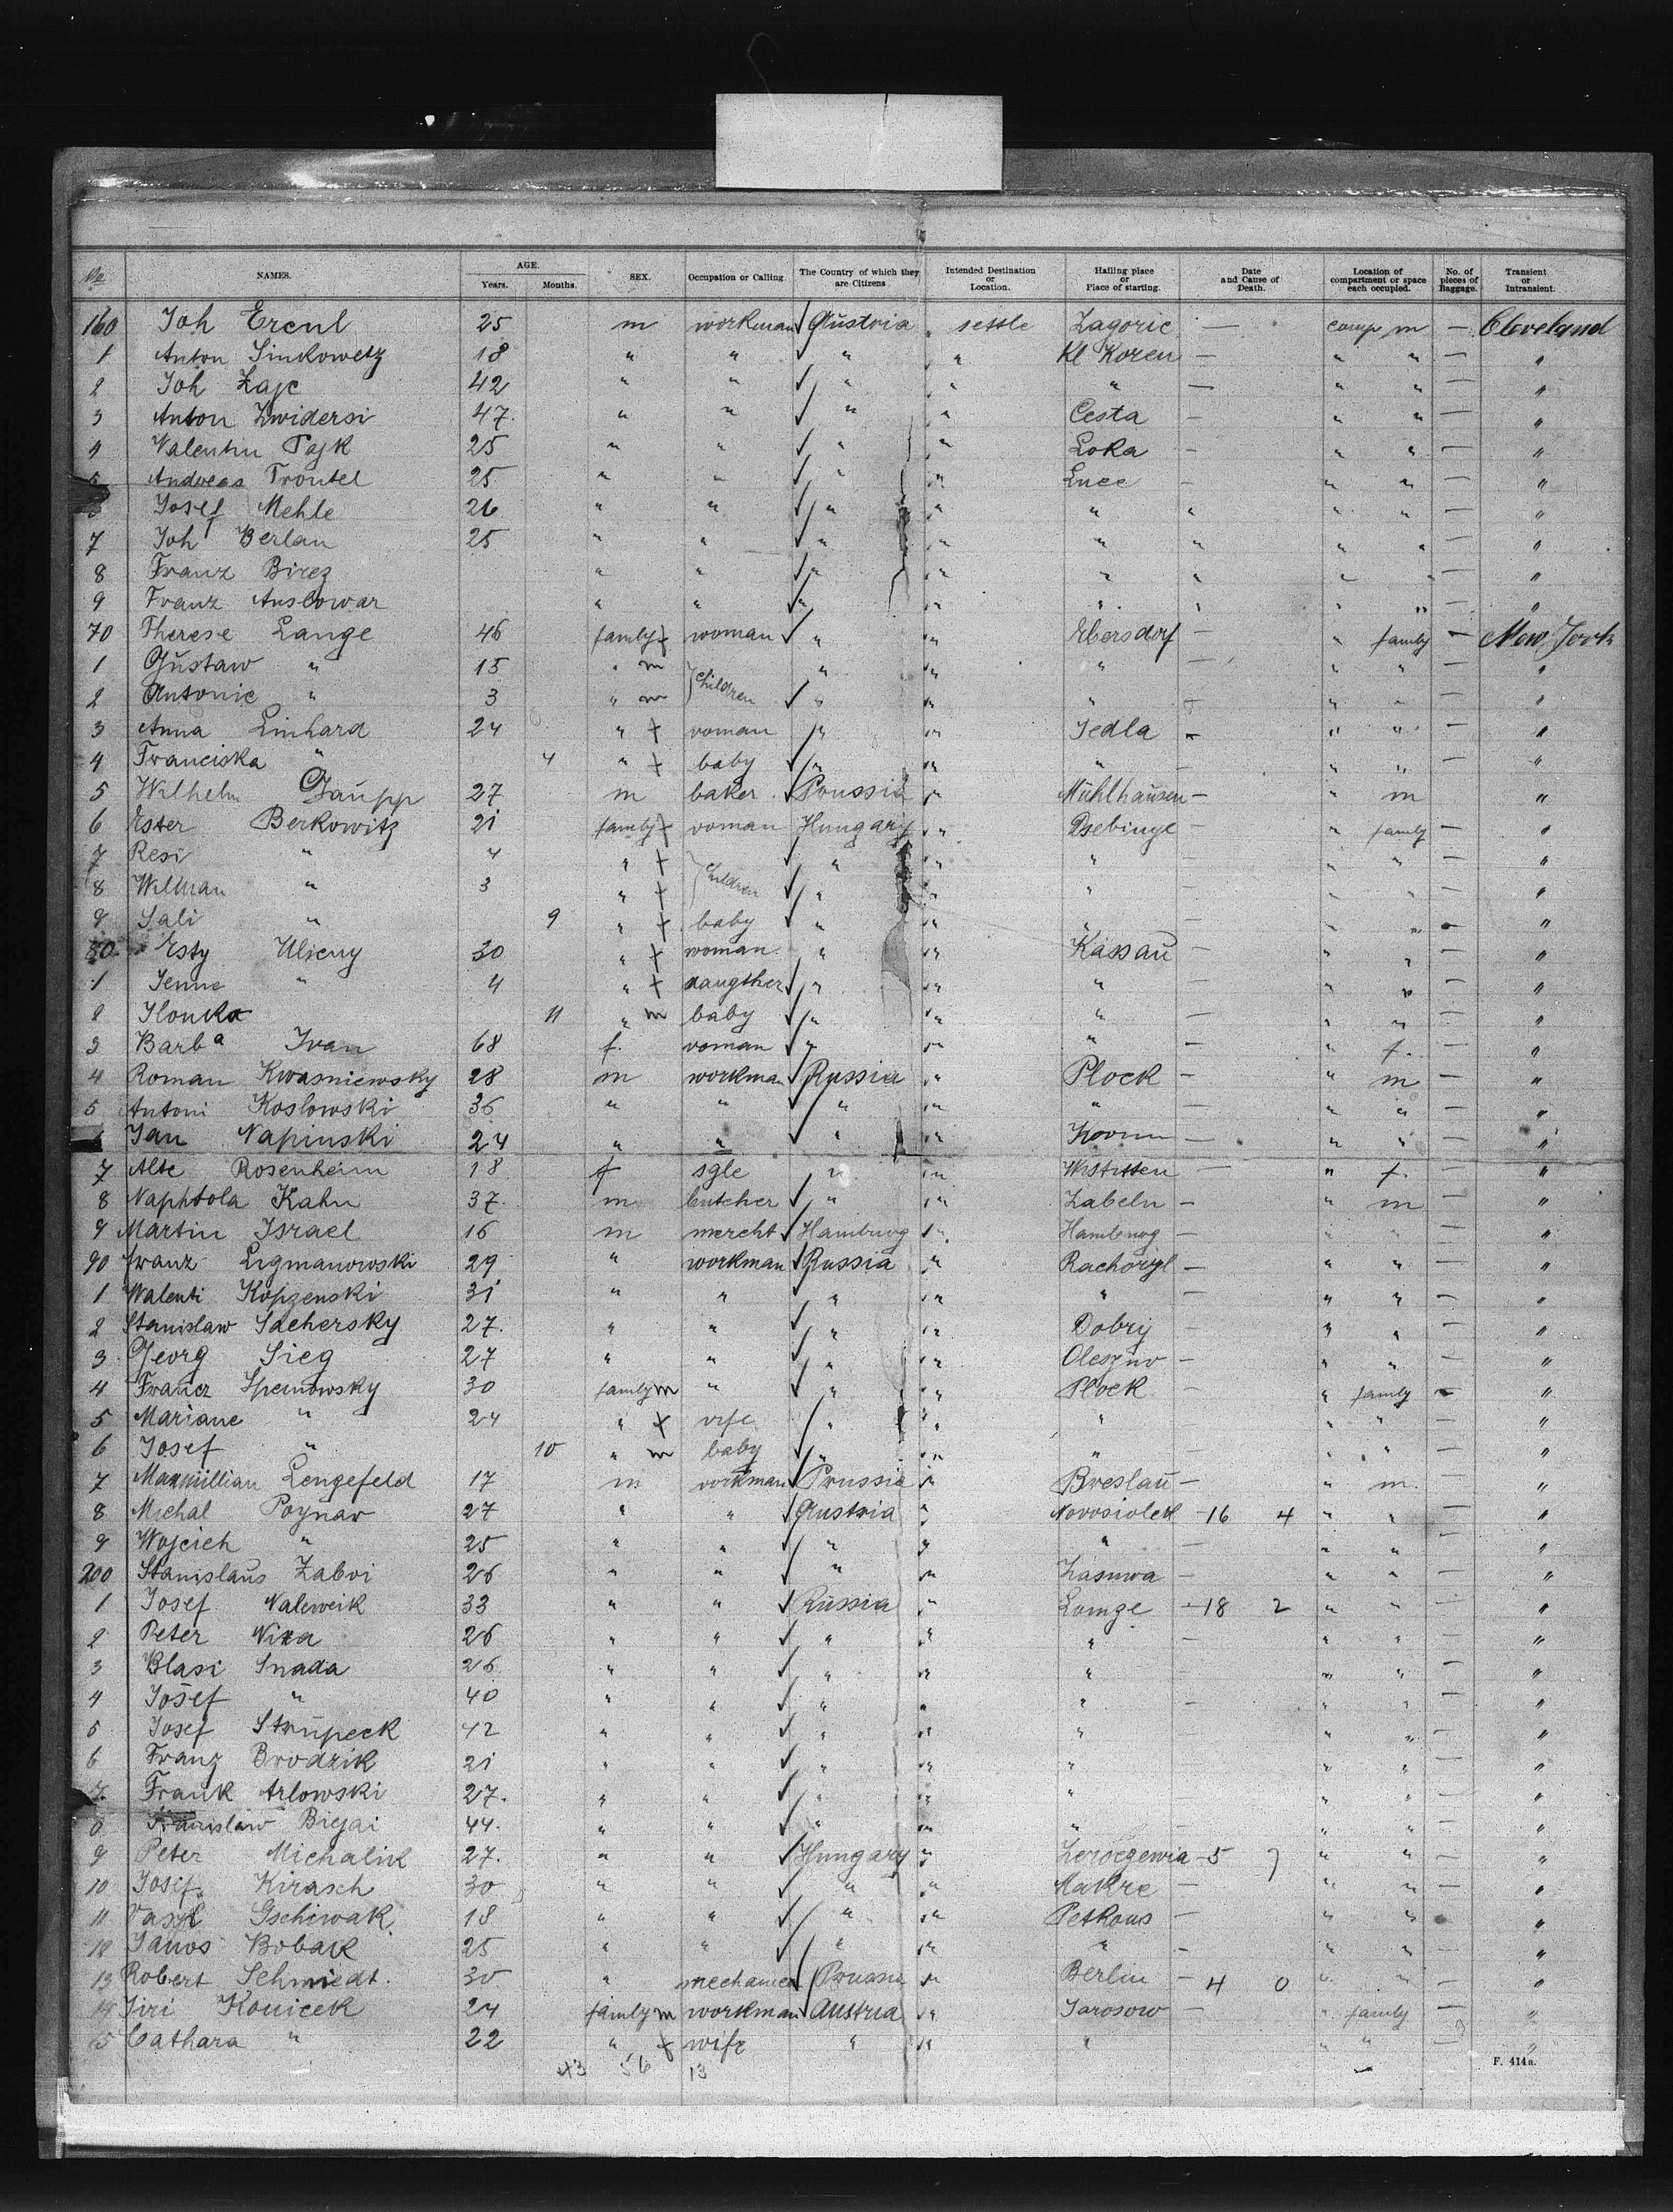 No NAMES. AGE. Years. Months. SEX. Occupation or Calling. The Country of which they are Citizens Intended Destination or Location. Hailing place or Place of starting. Date and Cause of Death. Location of compartment or space each occupied. No. of pieces of Baggage. Transient or Intransient.
160 Joh Ercul 25 m workman Austria settle Zagoric — comp m — Cleveland
1 Anton Sinkowetz 18 " " " " Kl Koren — " " — "
2 Joh Zajc 42 " " " " " — " " — "
3 Anton Zwidersi 47. " " " " Cesta — " " — "
4 Valentin Pajk 25 " " " " Loka — " " — "
5 Andreas Trontel 25 " " " " Luce — " " — "
Josef Mehle 26 " " " " " " " " — "
7 Joh Berlan 25 " " " " " " " " — "
8 Franz Birez " " " " " " " " — "
9 Franz " " " " " " " " — "
70 Therese Lange 46 family f woman " " Ebersdorf — " family — New York
1 Gustaw " 15 " m children " " " — " " — "
2 Antonie " 3 " m " " " — " " — "
3 Anna Linhard 24 " f woman " " Sedla — " " — "
4 Franciska " 4 " f baby " " " — " " — "
5 Wilhelm Gaupp 27 m baker Prussia " Mühlhausen — " m "
6 Ester Berkowitz 21 family f woman Hungary " — " family — "
7 Resi " 4 " f children " " " — " " — "
8 " 3 " f " " " — " " — "
9 Sali " 9 " f baby " " " — " " — "
80 Esty Ulicny 30 " f woman " " Kassau — " " — "
1 " 4 " f daugther " " " — " " — "
2 Ilonka 11 " m baby " " " — " " — "
3 Barba Ivan 68 f. woman " " " — " f. — "
4 Roman Kwasniewsky 28 m workman Russia " Plock — " m — "
5 Antoni Koslowski 36 " " " " " — " " — "
Jan Napinski 24 " " " " — " " — "
7 Alte Rosenheim 18 f sgle " " — " f. — "
8 Naphtola Kahn 37. m butcher " " Zabeln — " m — "
9 Martin Israel 16 m mercht Hamburg " Hamburg — " " — "
90 Franz Ligmanowski 29 " workman Russia " — " " — "
1 Walenti Kopzenski 31 " " " " " — " " — "
2 Stanislaw Sachersky 27. " " " " Dobrij — " " — "
3 Georg Sieg 27 " " " " Oleszno — " " — "
4 Francz 30 family m " " " Plock — " family — "
5 Mariane " 24 " f wife " " " " " "
6 Josef " 10 " m baby " " " — " " — "
7 Maxmillian Lengefeld 17 m workman Prussia " Breslau — " m. — "
8 Michal Poynar 27 " " Austria " Novosiolek — 16 4 " " — "
9 Wojcieh " 25 " " " " " — " " — "
200 Stanislaus Zaboi 26 " " " " — " " — "
1 Josef Naleweik 33 " " Russia " Lomge — 18 2 " " — "
2 Peter 26 " " " " " — " " — "
3 Blasi Snada 26 " " " " " " " — "
4 Josef " 40 " " " " " — " " — "
5 Josef Strupeck 42 " " " " " " " — "
6 Franz Brodzik 21 " " " " " " " — "
7. Frank Arlowski 27. " " " " " " " — "
8 Biejai 44. " " " " " " " — "
9 Peter Michalik 27. " " Hungary " — 5 7 " " — "
10 Josif Kirasch 30 " " " " Makre — " " — "
11 Vasyl Gschiwak 18 " " " " Petkous — " " "
12 Janos Bobak 25 " " " " " — " " — "
13 Robert Schmiedt. 30 " " Berlin — 4 0 " " — "
14 Jiri Konicek 24 family m workman Austria " Jarosow — " family — "
15 Cathara " 22 " f wife " " " " " "
43 56 13
F. 414a.